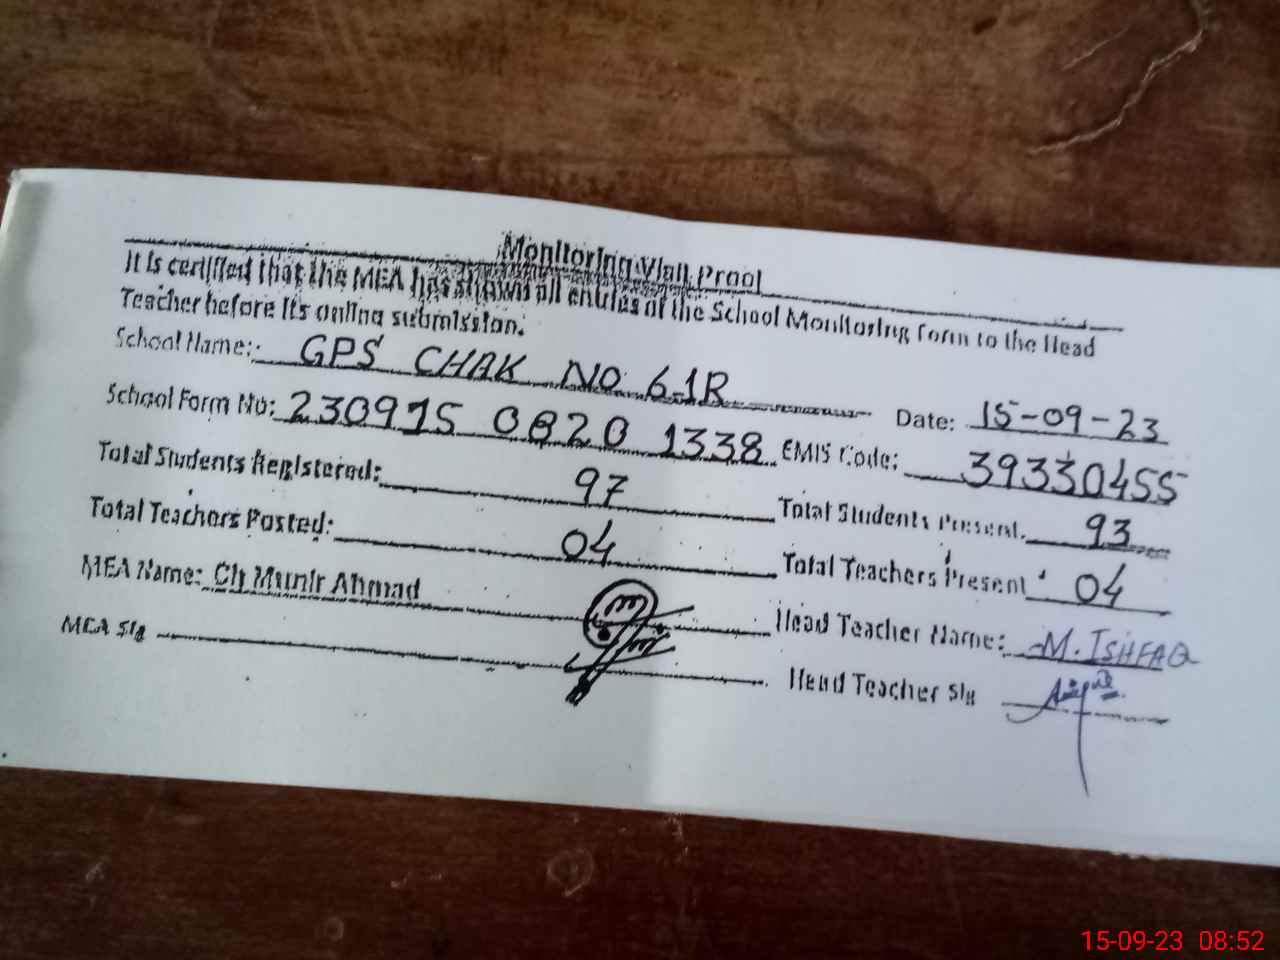 Monitoring Visit Proof
It is certified that the MEA has shown all entries of the School Monitoring Form to the Head
Teacher before its online submission.
School Name: GPS CHAK NO 6-1R Date: 15-09-23
School Form No: 230915 0820 1338 EMIS Code: 39330455
Total Students Registered: 97 Total Students Present. 93
Total Teachers Posted: 04 Total Teachers Present 04
MEA Name: Ch Munir Ahmad Head Teacher Name: M. ISHFAQ
MEA Sig Head Teacher Sig
15-09-23 08:52